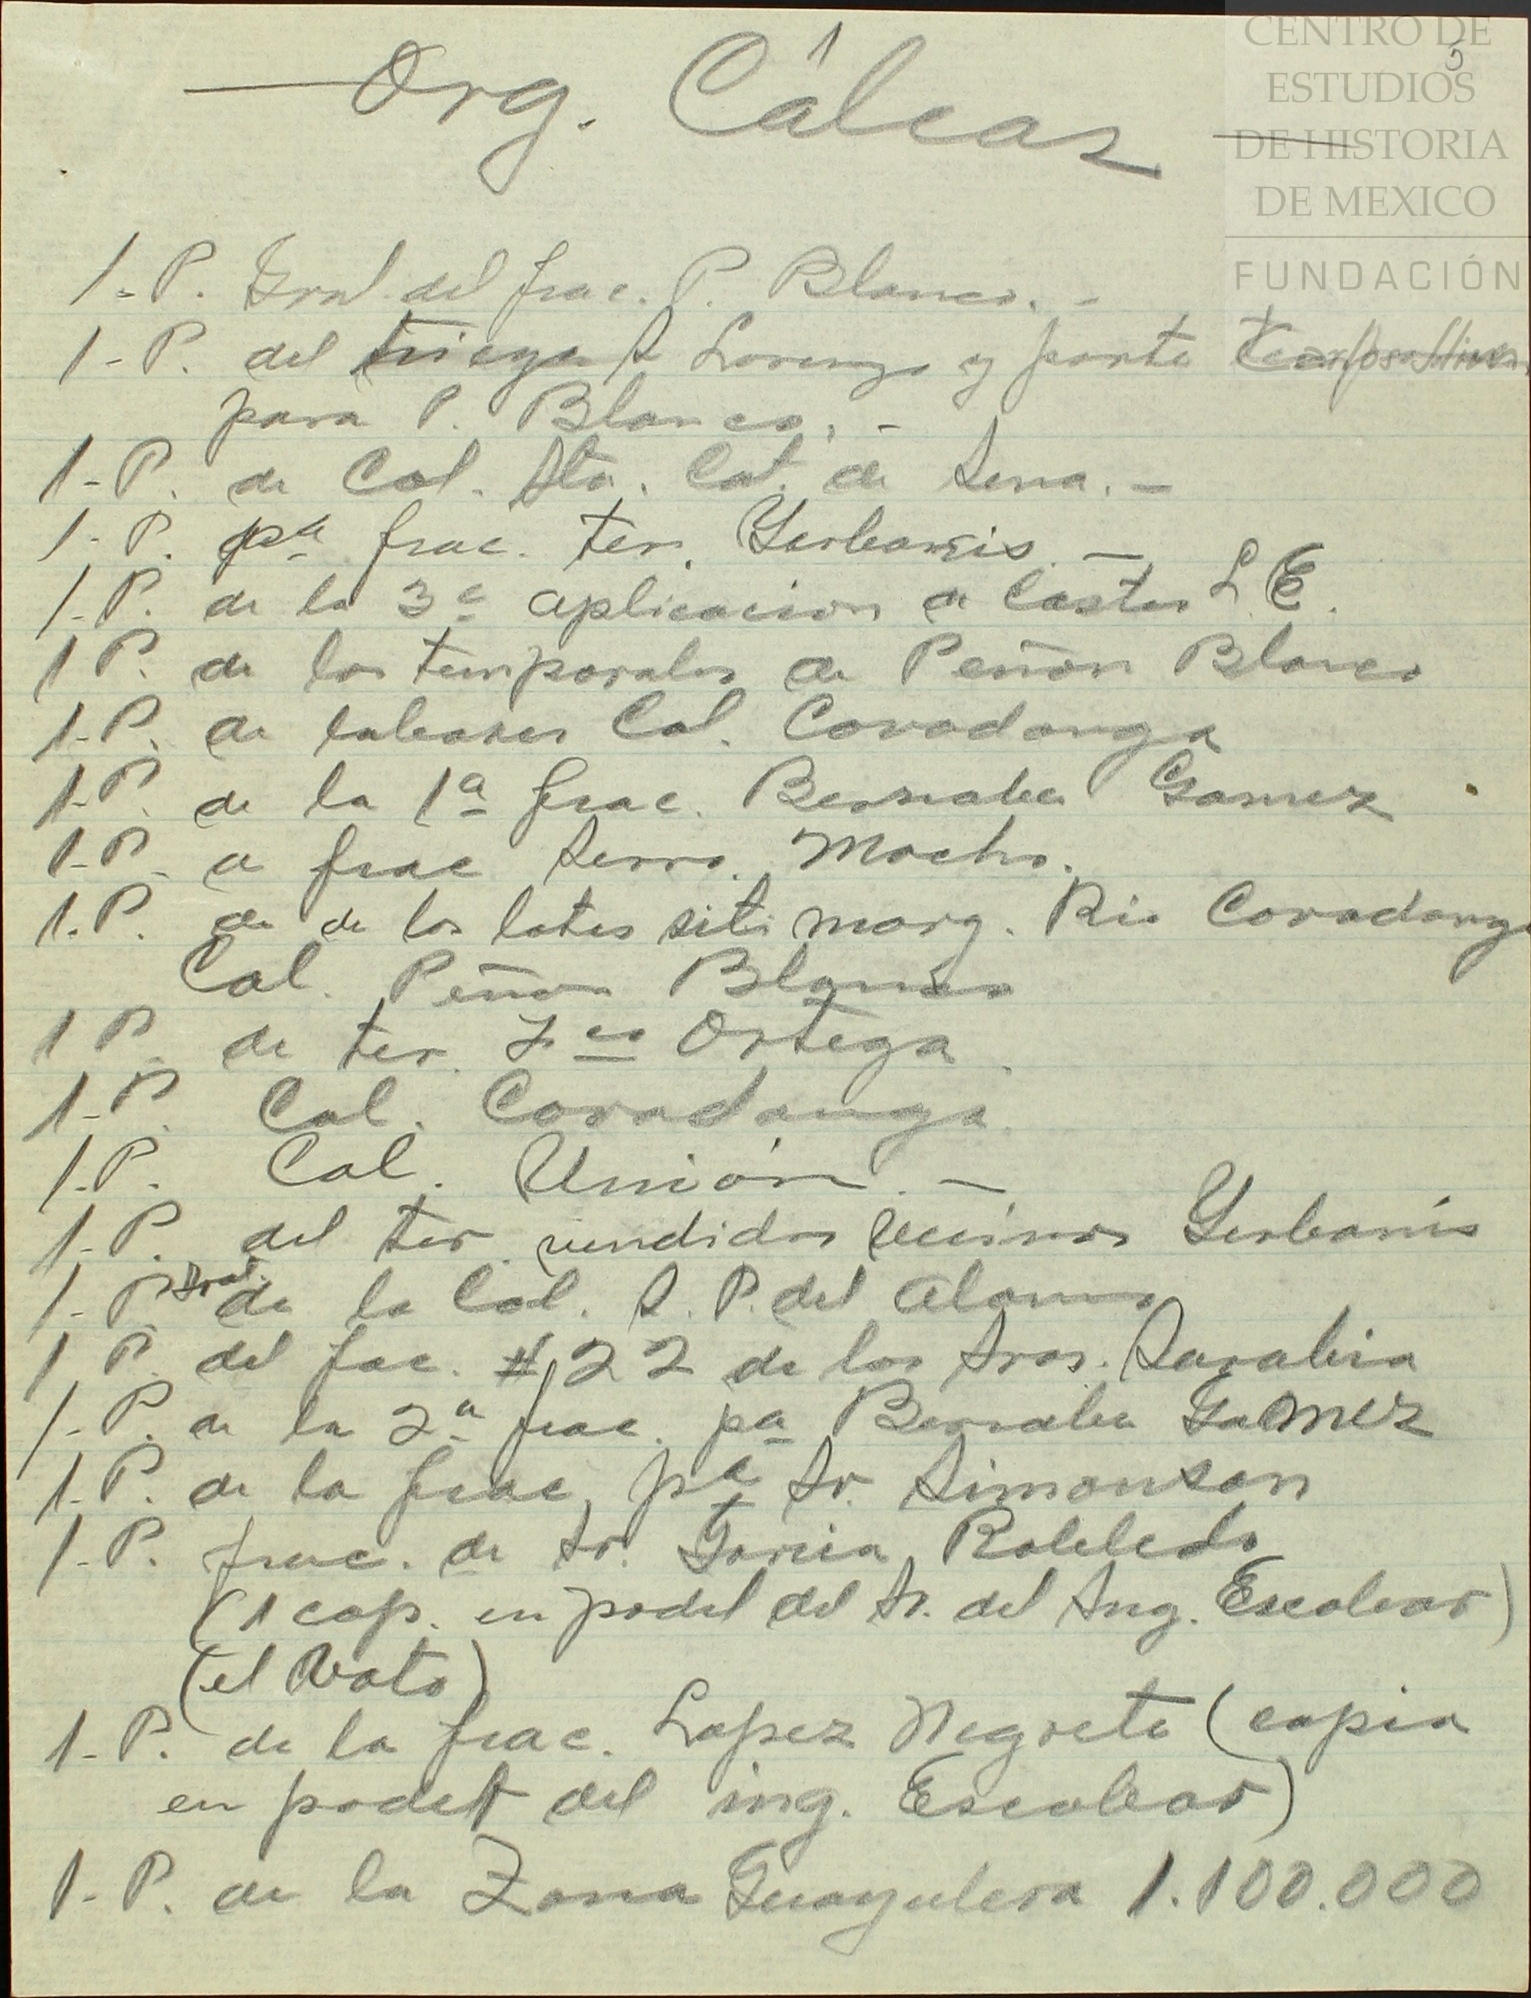 CENTRO DE
ESTUDIOS
DE HISTORIA
DE MEXICO
FUNDACIÓN
5
Org. Cálcas
1-P. Gral del frac. P. Blanco.-
1-P. del S Lorenzo y parte
para P. Blanco.-
1-P. de Col. Sta. Cat. de Sena.-
1-P. pa frac. ter. Yerbanis.-
1-P. de la 3a aplicacion de Castes L.E.
1 P. de los temporales de Peñon Blanco
1-P. de Col. Covadonga
1-P. de la 1a frac. Bernabe Gamez
1-P. de frac Serro. Mocho.
1.P. de de los lotes siti marg. Rio Covadonga
Col. Peñon Blanco
1 P. de ter. Fco Ortega.
1-P. Col. Covadonga.
1.P. Col. Unión.-
1-P. del ter. vendidos vecinos Yerbanis
1-P. Gral. de la Col. S. P. del Alamo
1 P. del fac. # 22 de los Sras. Sarabia
1-P. de la 2a frac. pa Bernabe Gamez
1.P. de la frac. pa Sr. Simonson
1-P. frac. de Sr. Garcia Robledo
(1 cop. en podel del Sr. del Ing. Escobar)
(el Vato)
1-P. de la frac. Lopez Negrete (copia
en podet del ing. Escobar)
1-P. de la Zona Guayulera 1.100.000